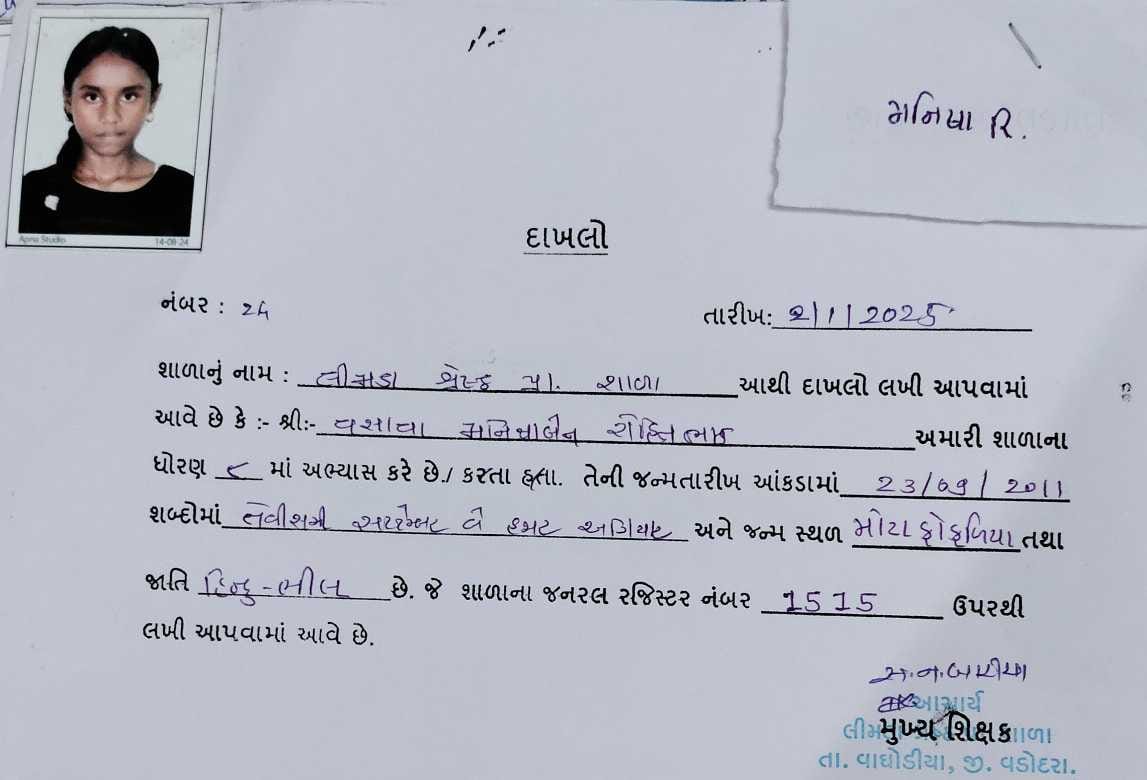 મનિષા રિ.
Apna Studio 14-08-24
દાખલો
નંબર : 24
તારીખ: 2/1/2025
શાળાનું નામ : લીમડા પ્રા. શાળા આથી દાખલો લખી આપવામાં
આવે છે કે :- શ્રીઃ- વસાવા મનિષાબેન રોહિતભાઈ અમારી શાળાના
ધોરણ ૮ માં અભ્યાસ કરે છે./ કરતા હતા. તેની જન્મતારીખ આંકડામાં 23/09/2011
શબ્દોમાં તેવીસમી સપ્ટેમ્બર બે હજાર અગિયાર અને જન્મ સ્થળ મોટા ફોફળિયા તથા
જાતિ હિન્દુ-ભીલ છે. જે શાળાના જનરલ રજિસ્ટર નંબર 1515 ઉપરથી
લખી આપવામાં આવે છે.
આચાર્ય
મુખ્ય શિક્ષક
લીમડા શાળા
તા. વાઘોડીયા, જી. વડોદરા.